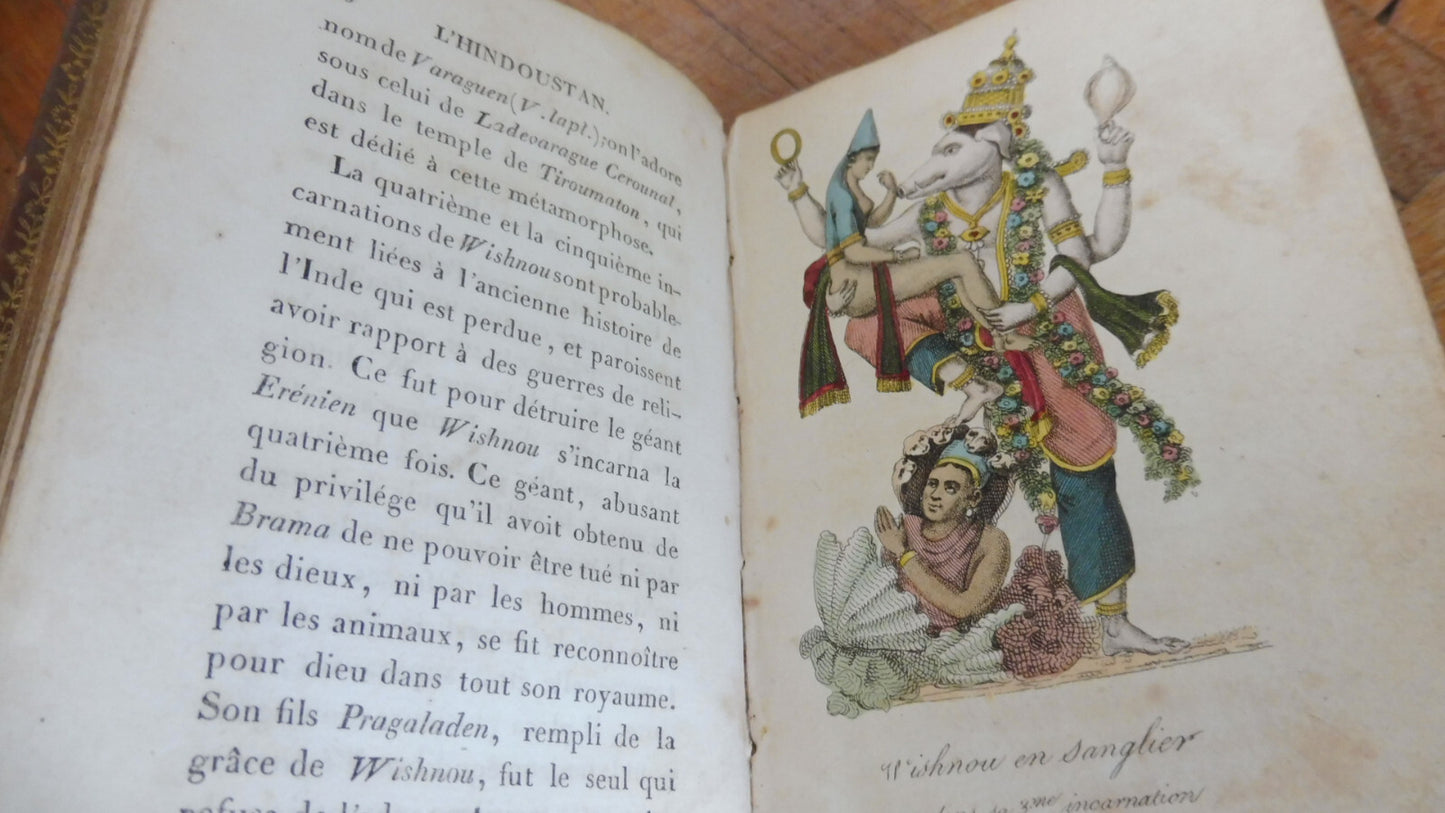 L'HINDOUSTAN.
nom de Varaguen (V. lapl.); on l'adore
sous celui de Ladevarague Cerounal,
dans le temple de Tiroumaton, qui
est dédié à cette métamorphose.
La quatrième et la cinquième in-
carnations de Wishnou sont probable-
ment liées à l'ancienne histoire de
l'Inde qui est perdue, et paroissent
avoir rapport à des guerres de reli-
gion. Ce fut pour détruire le géant
Erénien que Wishnou s'incarna la
quatrième fois. Ce géant, abusant
du privilége qu'il avoit obtenu de
Brama de ne pouvoir être tué ni par
les dieux, ni par les hommes, ni
par les animaux, se fit reconnoître
pour dieu dans tout son royaume.
Son fils Pragaladen, rempli de la
grâce de Wishnou, fut le seul qui
Wishnou en Sanglier
sa 3me incarnation